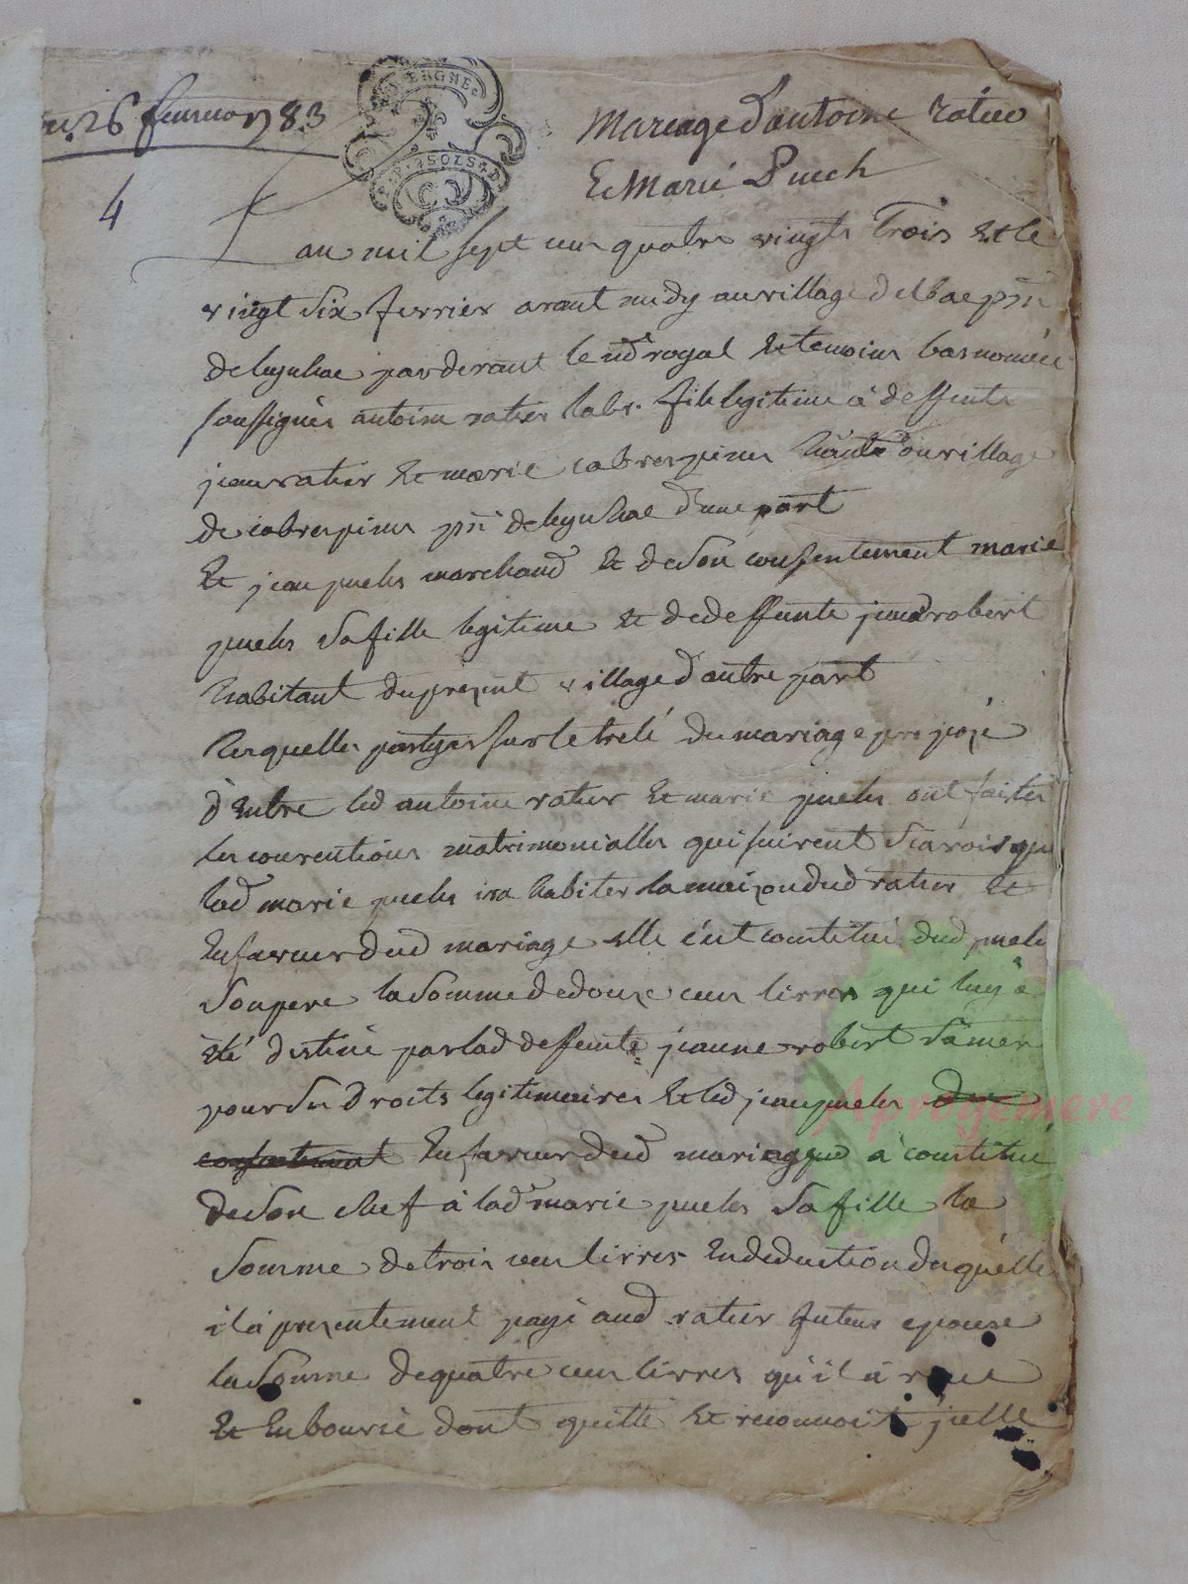 du 26 fevrier 1783
4
Mariage d'antoine ratier
Et Marie Puech
L'an mil sept cens quatre vingts trois et le
vingt six fevrier avant midy au village d'elbac psse
de leynhac par devant le nre royal et temoins bas només
soussignés antoine ratier labr. fils legitime à deffents
jean ratier et marie cabrespines hàntt du village
de cabrespines psse de leynhac d'une part
Et jean puehs marchand et de son consentement marie
puehs sa fille legitime et de deffunte jeane robert
habitant du present village d'autre part
Lesquelles partyes sur le treté du mariage proposé
d'Entre led antoine ratier et marie puehs ont faites
les conventions matrimonialles qui suivent sçavoir que
lad marie puehs ira habiter la maizon dud ratier et
En faveur dud mariage elle s'est constitué dud puehs
son pere la somme de douze cens livres qui luy à
été destiné par lad deffeinte jeanne robert sa mere
pour ses droits legitimaires et led jean puehs
consentement En faveur dud mariage à constitué
de son chef à lad marie puehs sa fille la
somme de trois cens livres En deduction desquelles
il à presentement payé aud ratier futeur epouse
la somme de quatre cens livres qu'il à reçue
Et Enboursé dont quitte et reconnoit jcelle
Aprogemere